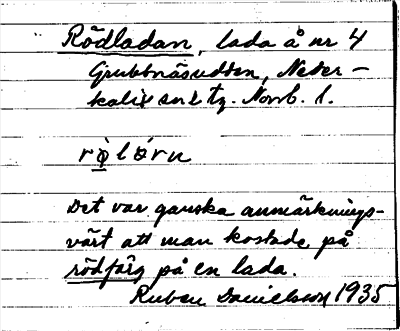 Rödladan, lada å nr 4
Grubbnäsudden, Neder-
kalix sn o tg. Norrb. l.
Det var ganska anmärknings-
värt att man kostade på
rödfärg på en lada.
Ruben Danielsson 1935